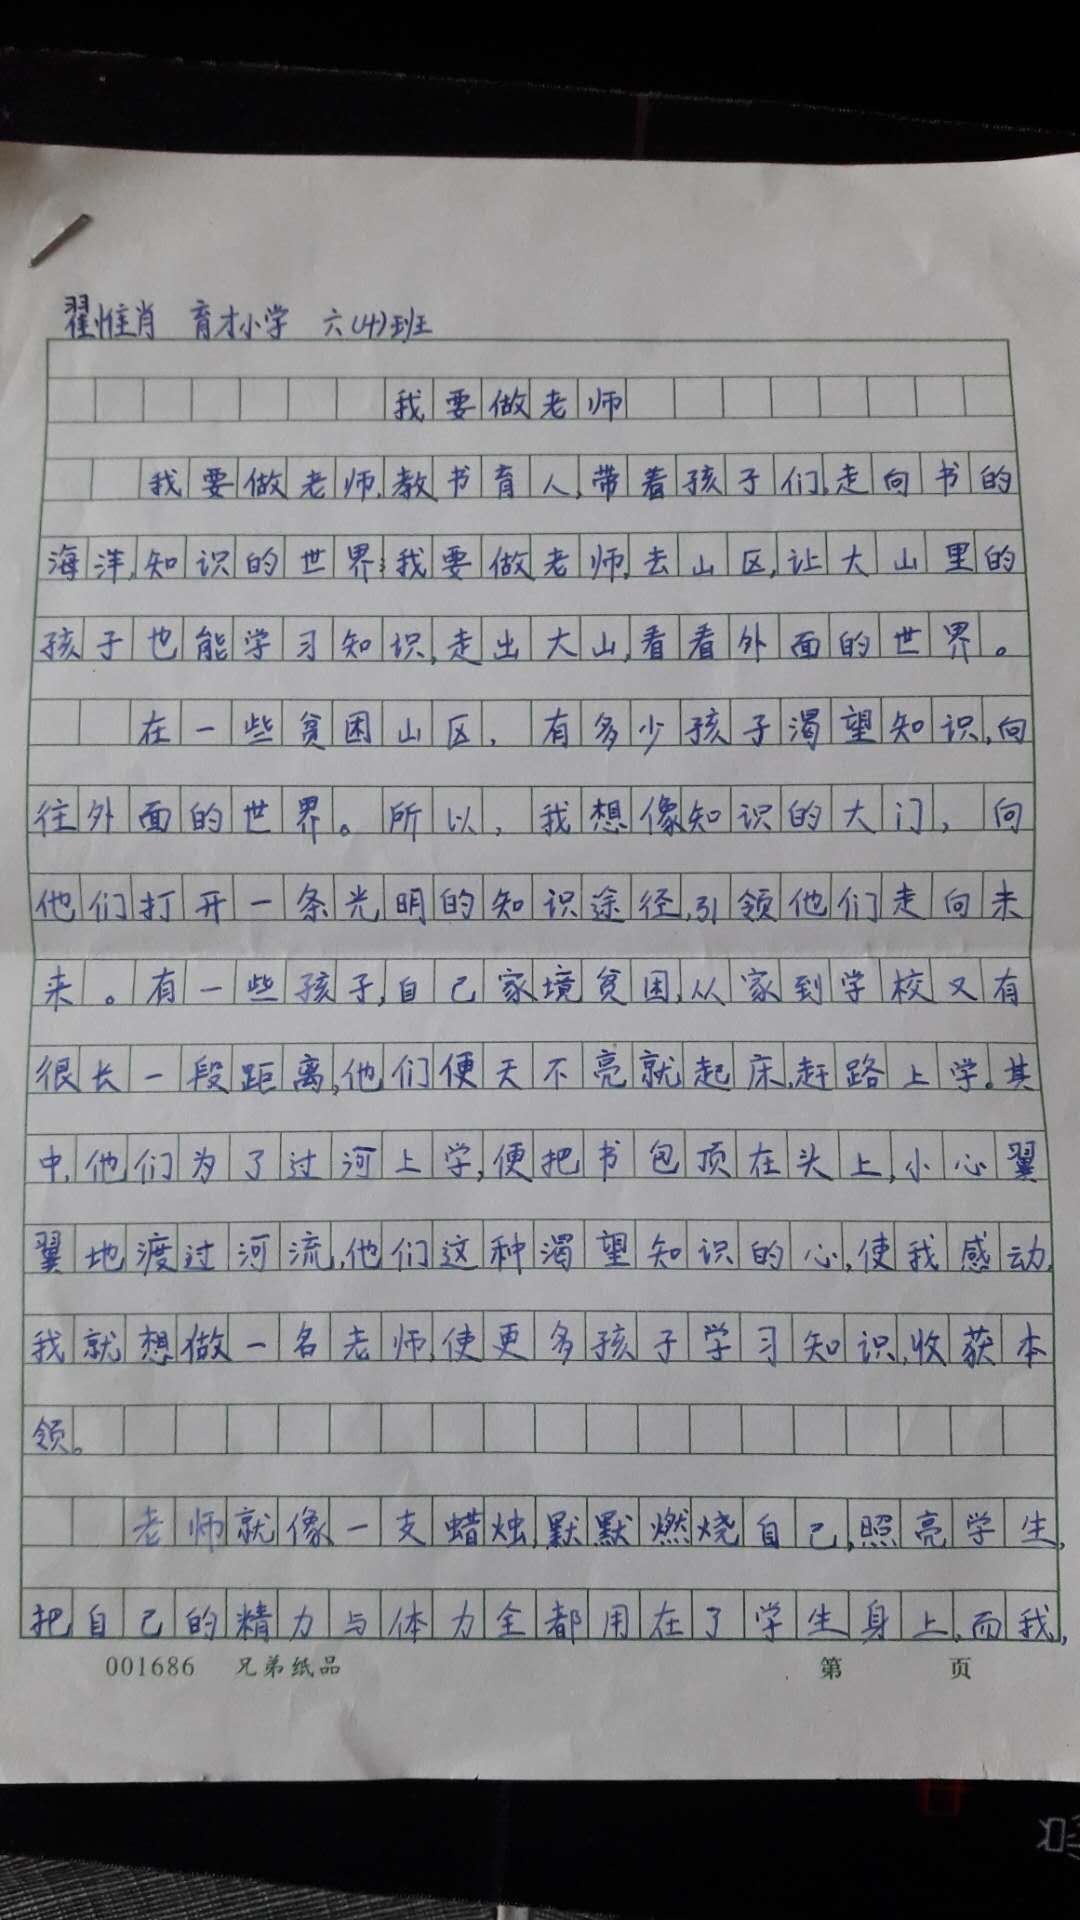 翟惟肖 育才小学 六(4)班
我要做老师
我要做老师,教书育人,带着孩子们,走向书的
海洋,知识的世界;我要做老师,去山区,让大山里的
孩子也能学习知识,走出大山,看看外面的世界。
在一些贫困山区,有多少孩子渴望知识,向
往外面的世界。所以,我想像知识的大门,向
他们打开一条光明的知识途径,引领他们走向未
来。有一些孩子,自己家境贫困,从家到学校又有
很长一段距离,他们便天不亮就起床,赶路上学。其
中,他们为了过河上学,便把书包顶在头上,小心翼
翼地渡过河流,他们这种渴望知识的心,使我感动,
我就想做一名老师,使更多孩子学习知识,收获本
领。
老师就像一支蜡烛,默默燃烧自己,照亮学生,
把自己的精力与体力全都用在了学生身上,而我,
001686 兄弟纸品 第 页